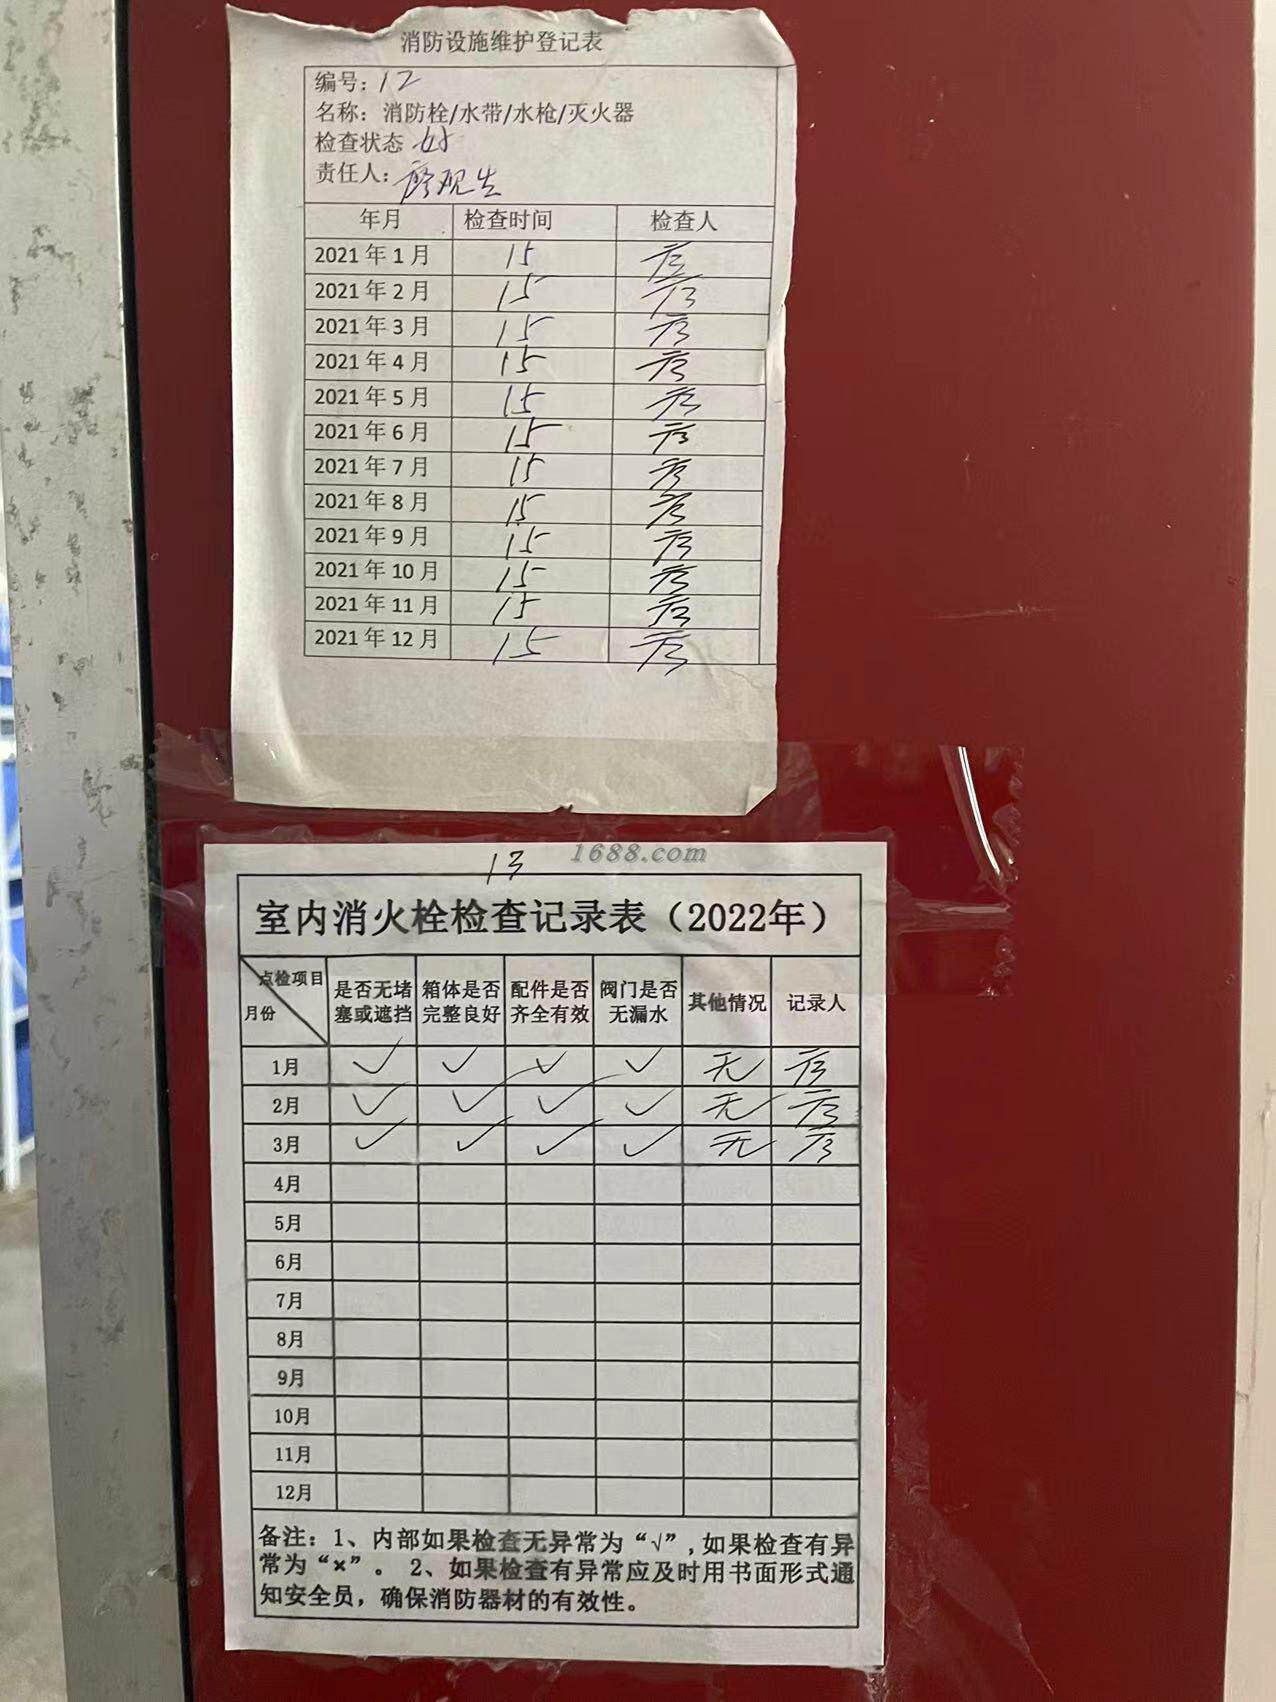 消防设施维护登记表
编号：12
名称：消防栓/水带/水枪/灭火器
检查状态 好
责任人：
年月 检查时间 检查人
2021年1月 15
2021年2月 15
2021年3月 15
2021年4月 15
2021年5月 15
2021年6月 15
2021年7月 15
2021年8月 15
2021年9月 15
2021年10月 15
2021年11月 15
2021年12月 15
1688.com
13
室内消火栓检查记录表（2022年）
点检项目
月份
是否无堵塞或遮挡 箱体是否完整良好 配件是否齐全有效 阀门是否无漏水 其他情况 记录人
1月 ✓ ✓ ✓ ✓ 无
2月 ✓ ✓ ✓ ✓ 无
3月 ✓ ✓ ✓ ✓ 无
4月
5月
6月
7月
8月
9月
10月
11月
12月
备注：1、内部如果检查无异常为“√”,如果检查有异
常为“×”。 2、如果检查有异常应及时用书面形式通
知安全员，确保消防器材的有效性。